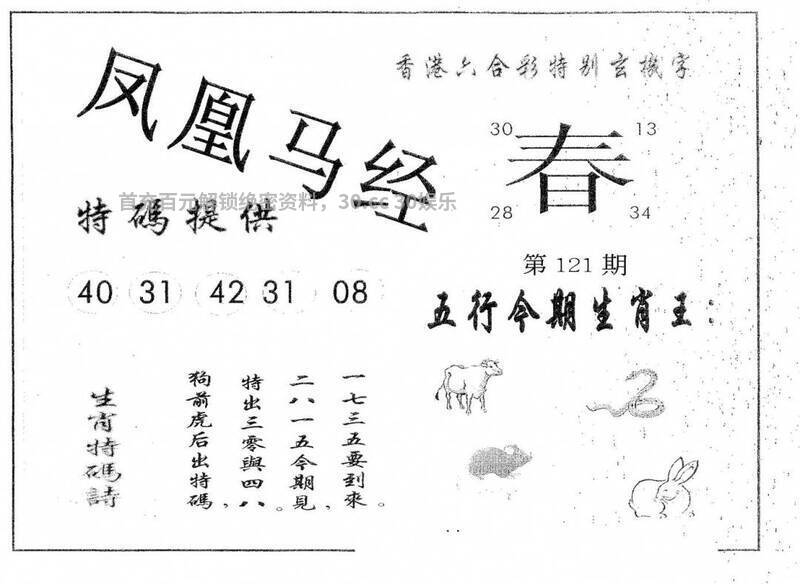 香港六合彩特别玄機字
凤凰马经
30 13
春
28 34
首充百元解锁绝密资料，30.cc 30娱乐
特碼提供
第121期
40 31 42 31 08
五行今期生肖王：
一七三五要到來。
二八一五今期見，
特出三零與四八。
狗前虎后出特碼，
生肖特碼詩